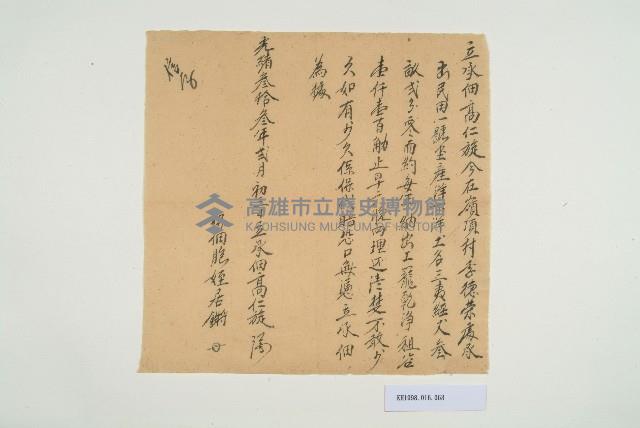 立承佃高仁旋今在嶺頂村李德榮處承
出民田一號坐產洋 洋土名三 經丈叁
畝式分零而約每年納出工籠乾淨租谷
壹仟壹百觔止早 理還清楚不敢少
欠如有少欠保 賠恐口無憑立承佃
為據
光緒叁拾叁年弍月初 立承佃高仁旋
保佃胞姪居
高雄市立歷史博物館
KAOHSIUNG MUSEUM OF HISTORY
KH1998.016.063